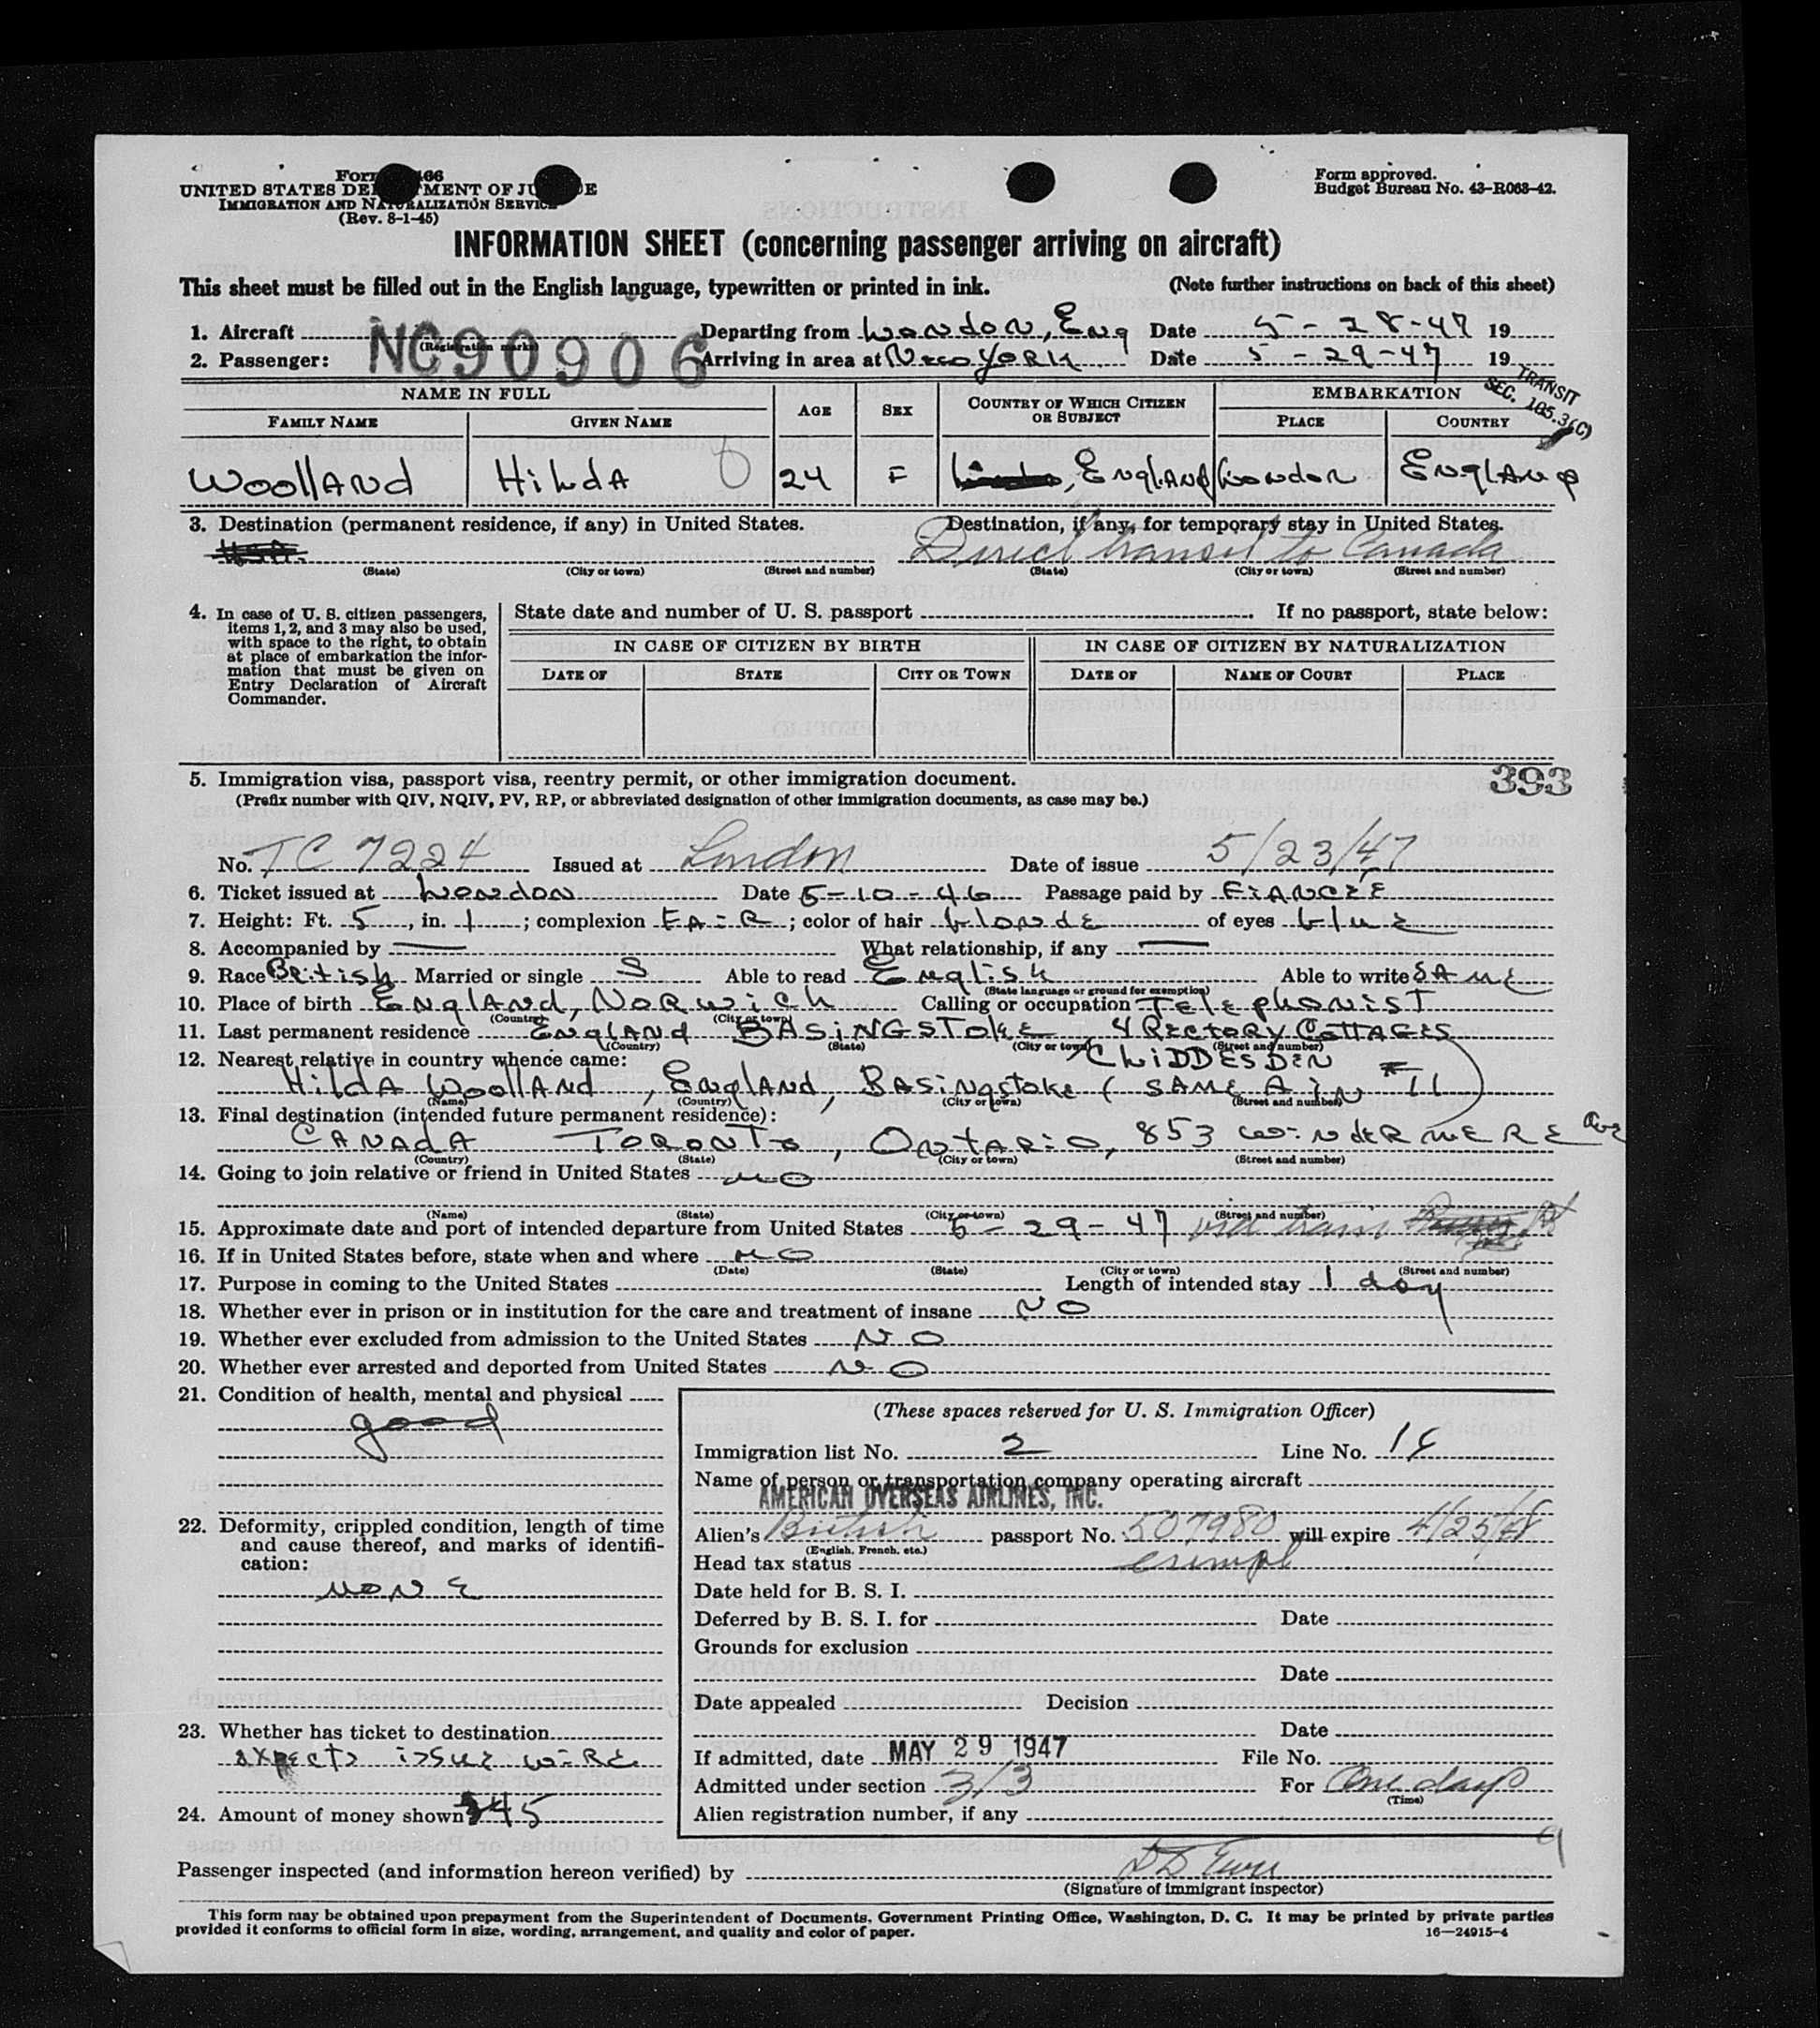 Form 466
UNITED STATES DEPARTMENT OF JUSTICE
IMMIGRATION AND NATURALIZATION SERVICE
(Rev. 8-1-45)
Form approved.
Budget Bureau No. 43-R068-42.
INFORMATION SHEET (concerning passenger arriving on aircraft)
This sheet must be filled out in the English language, typewritten or printed in ink. (Note further instructions on back of this sheet)
1. Aircraft NC90906 (Registration marks) Departing from London, Eng Date 5-28-47 19
2. Passenger: Arriving in area at New York Date 5-29-47 19
TRANSIT
SEC. 105.3(C)
NAME IN FULL AGE SEX COUNTRY OF WHICH CITIZEN OR SUBJECT EMBARKATION
FAMILY NAME GIVEN NAME PLACE COUNTRY
Woolland Hilda 24 F England London England
3. Destination (permanent residence, if any) in United States. Destination, if any, for temporary stay in United States.
USA. Direct transit to Canada
(State) (City or town) (Street and number) (State) (City or town) (Street and number)
4. In case of U. S. citizen passengers, items 1, 2, and 3 may also be used, with space to the right, to obtain at place of embarkation the information that must be given on Entry Declaration of Aircraft Commander.
State date and number of U. S. passport . If no passport, state below:
IN CASE OF CITIZEN BY BIRTH IN CASE OF CITIZEN BY NATURALIZATION
DATE OF STATE CITY OR TOWN DATE OF NAME OF COURT PLACE
5. Immigration visa, passport visa, reentry permit, or other immigration document. 393
(Prefix number with QIV, NQIV, PV, RP, or abbreviated designation of other immigration documents, as case may be.)
No. TC 7224 Issued at London Date of issue 5/23/47
6. Ticket issued at London Date 5-10-46 Passage paid by FIANCÉE
7. Height: Ft. 5, in. 1; complexion FAIR; color of hair blonde of eyes blue
8. Accompanied by — What relationship, if any —
9. Race British Married or single S Able to read English Able to write SAME
(State language or ground for exemption)
10. Place of birth England, Norwich Calling or occupation Telephonist
(Country) (City or town)
11. Last permanent residence England BASINGSTOKE 4 Rectory Cottages
(Country) (State) (City or town) (Street and number)
CLIDDESDEN
12. Nearest relative in country whence came:
Hilda Woolland, England, Basingstoke (SAME A IN #11)
(Name) (Country) (City or town) (Street and number)
13. Final destination (intended future permanent residence):
CANADA TORONTO, ONTARIO, 853 WINDERMERE Ave
(Country) (State) (City or town) (Street and number)
14. Going to join relative or friend in United States NO
(Name) (State) (City or town) (Street and number)
15. Approximate date and port of intended departure from United States 5-29-47 via train
16. If in United States before, state when and where NO
(Date) (State) (City or town) (Street and number)
17. Purpose in coming to the United States Length of intended stay 1 day
18. Whether ever in prison or in institution for the care and treatment of insane NO
19. Whether ever excluded from admission to the United States NO
20. Whether ever arrested and deported from United States NO
21. Condition of health, mental and physical
good
22. Deformity, crippled condition, length of time and cause thereof, and marks of identification:
NONE
23. Whether has ticket to destination
expects issue wire
24. Amount of money shown $45
(These spaces reserved for U. S. Immigration Officer)
Immigration list No. 2 Line No.
Name of person or transportation company operating aircraft
AMERICAN OVERSEAS AIRLINES, INC.
Alien's British passport No. 507980 will expire 4/25/48
(English, French, etc.)
Head tax status exempt
Date held for B. S. I.
Deferred by B. S. I. for Date
Grounds for exclusion
Date
Date appealed Decision
Date
If admitted, date MAY 29 1947 File No.
Admitted under section 3/3 For One day
(Time)
Alien registration number, if any
Passenger inspected (and information hereon verified) by
(Signature of immigrant inspector)
This form may be obtained upon prepayment from the Superintendent of Documents, Government Printing Office, Washington, D. C. It may be printed by private parties
provided it conforms to official form in size, wording, arrangement, and quality and color of paper. 16—24915-4